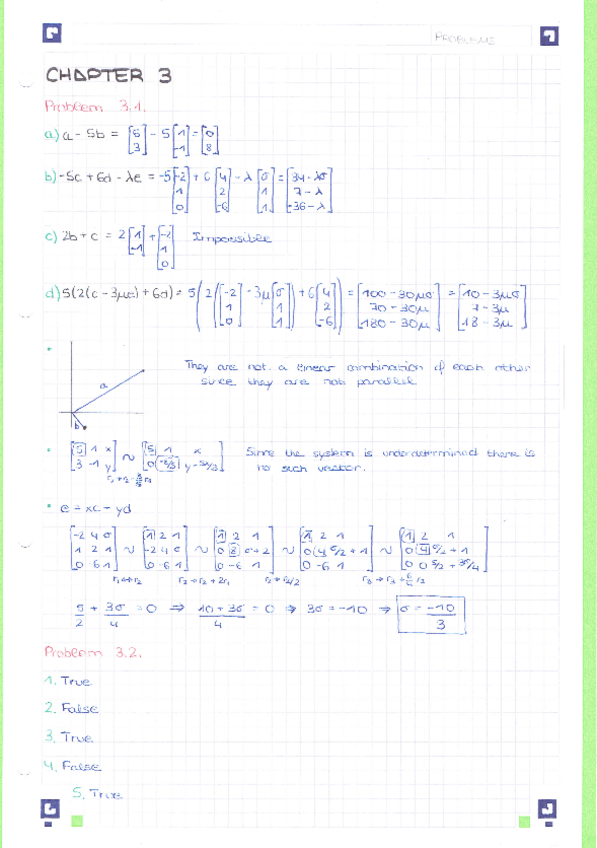 PROBLEMS
CHAPTER 3
Problem 3.1.
a) a - 5b = [5 3] - 5 [1 -1] = [0 8]
b) -5c + 6d - λe = -5 [-2 1 0] + 6 [4 2 -6] - λ [σ 1 1] = [34 - λσ 7 - λ -36 - λ]
c) 2b + c = 2 [1 -1] + [-2 1 0] Impossible
d) 5(2(c - 3μe) + 6d) = 5 (2 ([-2 1 0] - 3μ [σ 1 1]) + 6 [4 2 -6]) = [100 - 30μσ 70 - 30μ 180 - 30μ] = [10 - 3μσ 7 - 3μ 18 - 3μ]
a
b
They are not a linear combination of each other
since they are not parallel
[5 1 x 3 -1 y] ~ [5 1 x 0 -8/5 y - 3x/5] Since the system is underdetermined there is
no such vector.
e = xc - yd
[-2 4 σ 1 2 1 0 -6 1] ~ [1 2 1 -2 4 σ 0 -6 1] ~ [1 2 1 0 8 σ+2 0 -6 1] ~ [1 2 1 0 4 σ/2 + 1 0 -6 1] ~ [1 2 1 0 4 σ/2 + 1 0 0 5/2 + 3σ/4]
r1 ↔ r2 r2 → r2 + 2r1 r2 → r2/2 r3 → r3 + 6/4 r2
5/2 + 3σ/4 = 0 ⇒ 10 + 3σ/4 = 0 ⇒ 3σ = -10 ⇒ σ = -10/3
Problem 3.2.
1. True
2. False
3. True
4. False
5. True